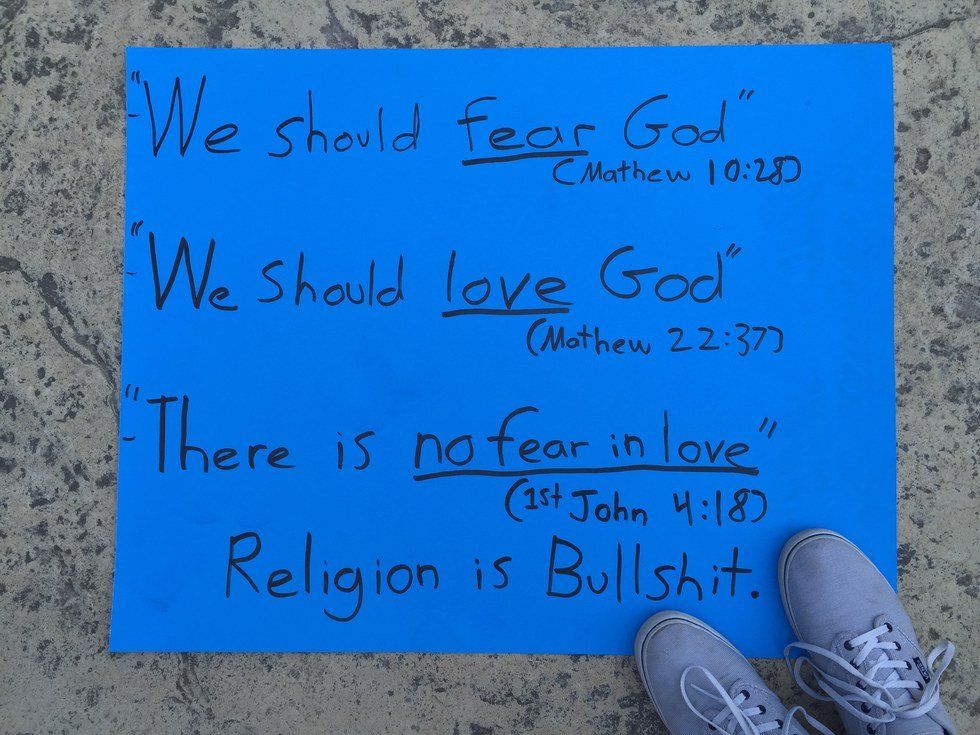 -"We should fear God"
(Mathew 10:28)
-"We should love God"
(Mathew 22:37)
-"There is no fear in love"
(1st John 4:18)
Religion is Bullshit.